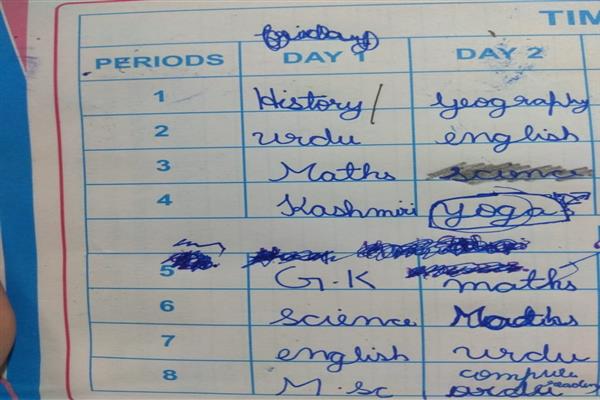 TIM
PERIODS DAY 1 DAY 2
1 History geography
2 urdu english
3 Maths science
4 Kashmiri yoga
5 G.K maths
6 science Maths
7 english urdu
8 M.sc urdu